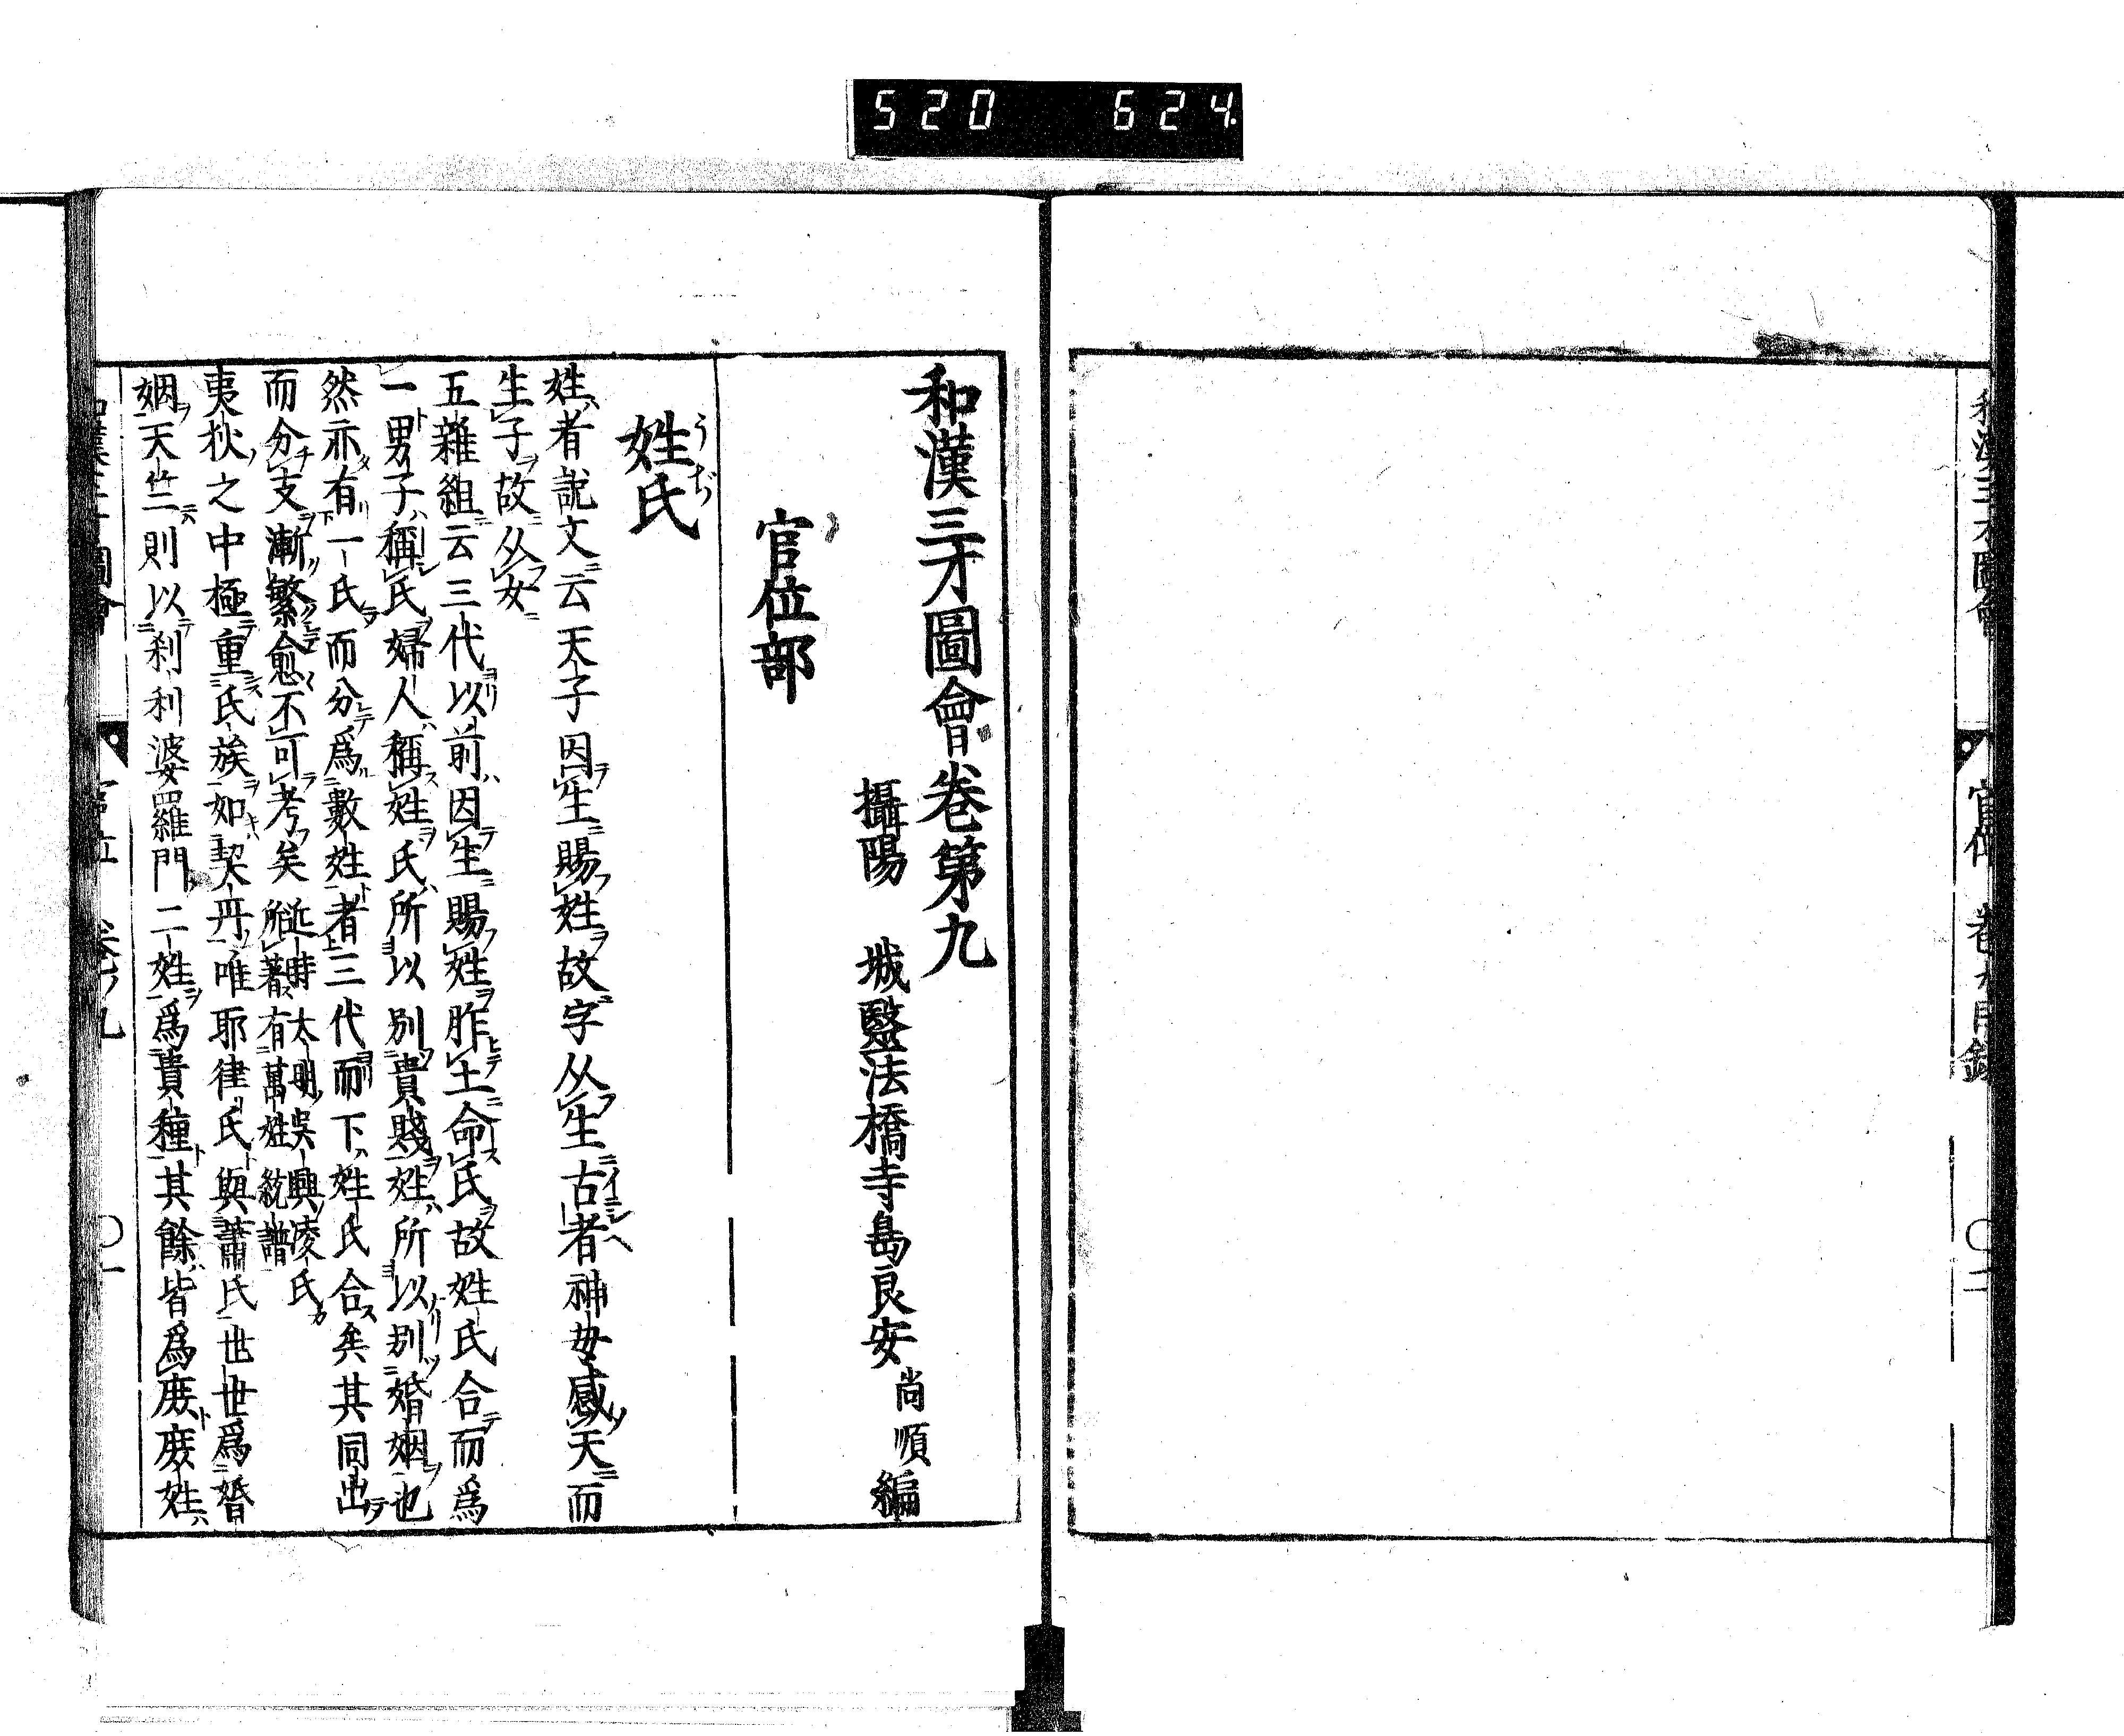 520 624.
和漢三才圖會
官位 卷九目録 〇二
和漢三才圖會卷第九
攝陽 城醫法橋寺島良安尚順編
官位部
姓氏
うぢ
姓者説文云天子因生賜姓故字从生古者神母感天而
生子故从女
五雜組云三代以前因生賜姓胙土命氏故姓氏合而爲
一男子稱氏婦人稱姓氏所以別貴賤姓所以別婚姻也
然亦有一氏而分爲數姓者三代而下姓氏合矣其同出
而分支漸繁愈不可考矣近時太明吳興凌氏
所著有萬姓統譜
夷狄之中極重氏族如契丹唯耶律氏與蕭氏世世爲婚
姻天竺則以刹利婆羅門二姓爲貴種其餘皆爲庶庶姓
和漢三才圖會 官位 卷ノ九 〇一